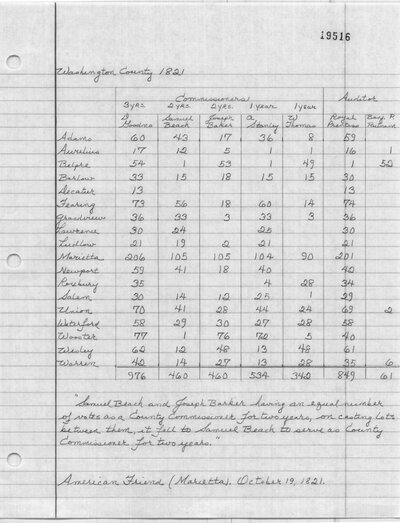 19516
Washington County 1821
Commissioners Auditor
3 yrs. 2 yrs. 2 yrs. 1 year 1 year
D Samuel Joseph A W Royal Benj. P.
Goodno Beach Baker Stanley Thomas Prentiss Putnam
Adams 60 43 17 36 8 59
Aurelius 17 12 5 1 1 16 1
Belpre 54 1 53 1 49 1 52
Barlow 33 15 18 15 15 30
Decatur 13 13
Fearing 73 56 18 60 14 74
Grandview 36 33 3 33 3 36
Lawrence 30 24 25 30
Ludlow 21 19 2 21 21
Marietta 206 105 105 104 90 201
Newport 59 41 18 40 42
Roxbury 35 4 28 34
Salem 30 14 12 25 1 29
Union 70 41 28 44 24 69 2
Waterford 58 29 30 27 28 58
Wooster 77 1 76 72 5 40
Wesley 62 12 48 13 48 61
Warren 42 14 27 13 28 35 6
976 460 460 534 342 849 61
"Samuel Beach and Joseph Barker having an equal number
of votes as a County Commissioner for two years, on casting lots
between them, it fell to Samuel Beach to serve as County
Commissioner for two years."
American Friend (Marietta). October 19, 1821.